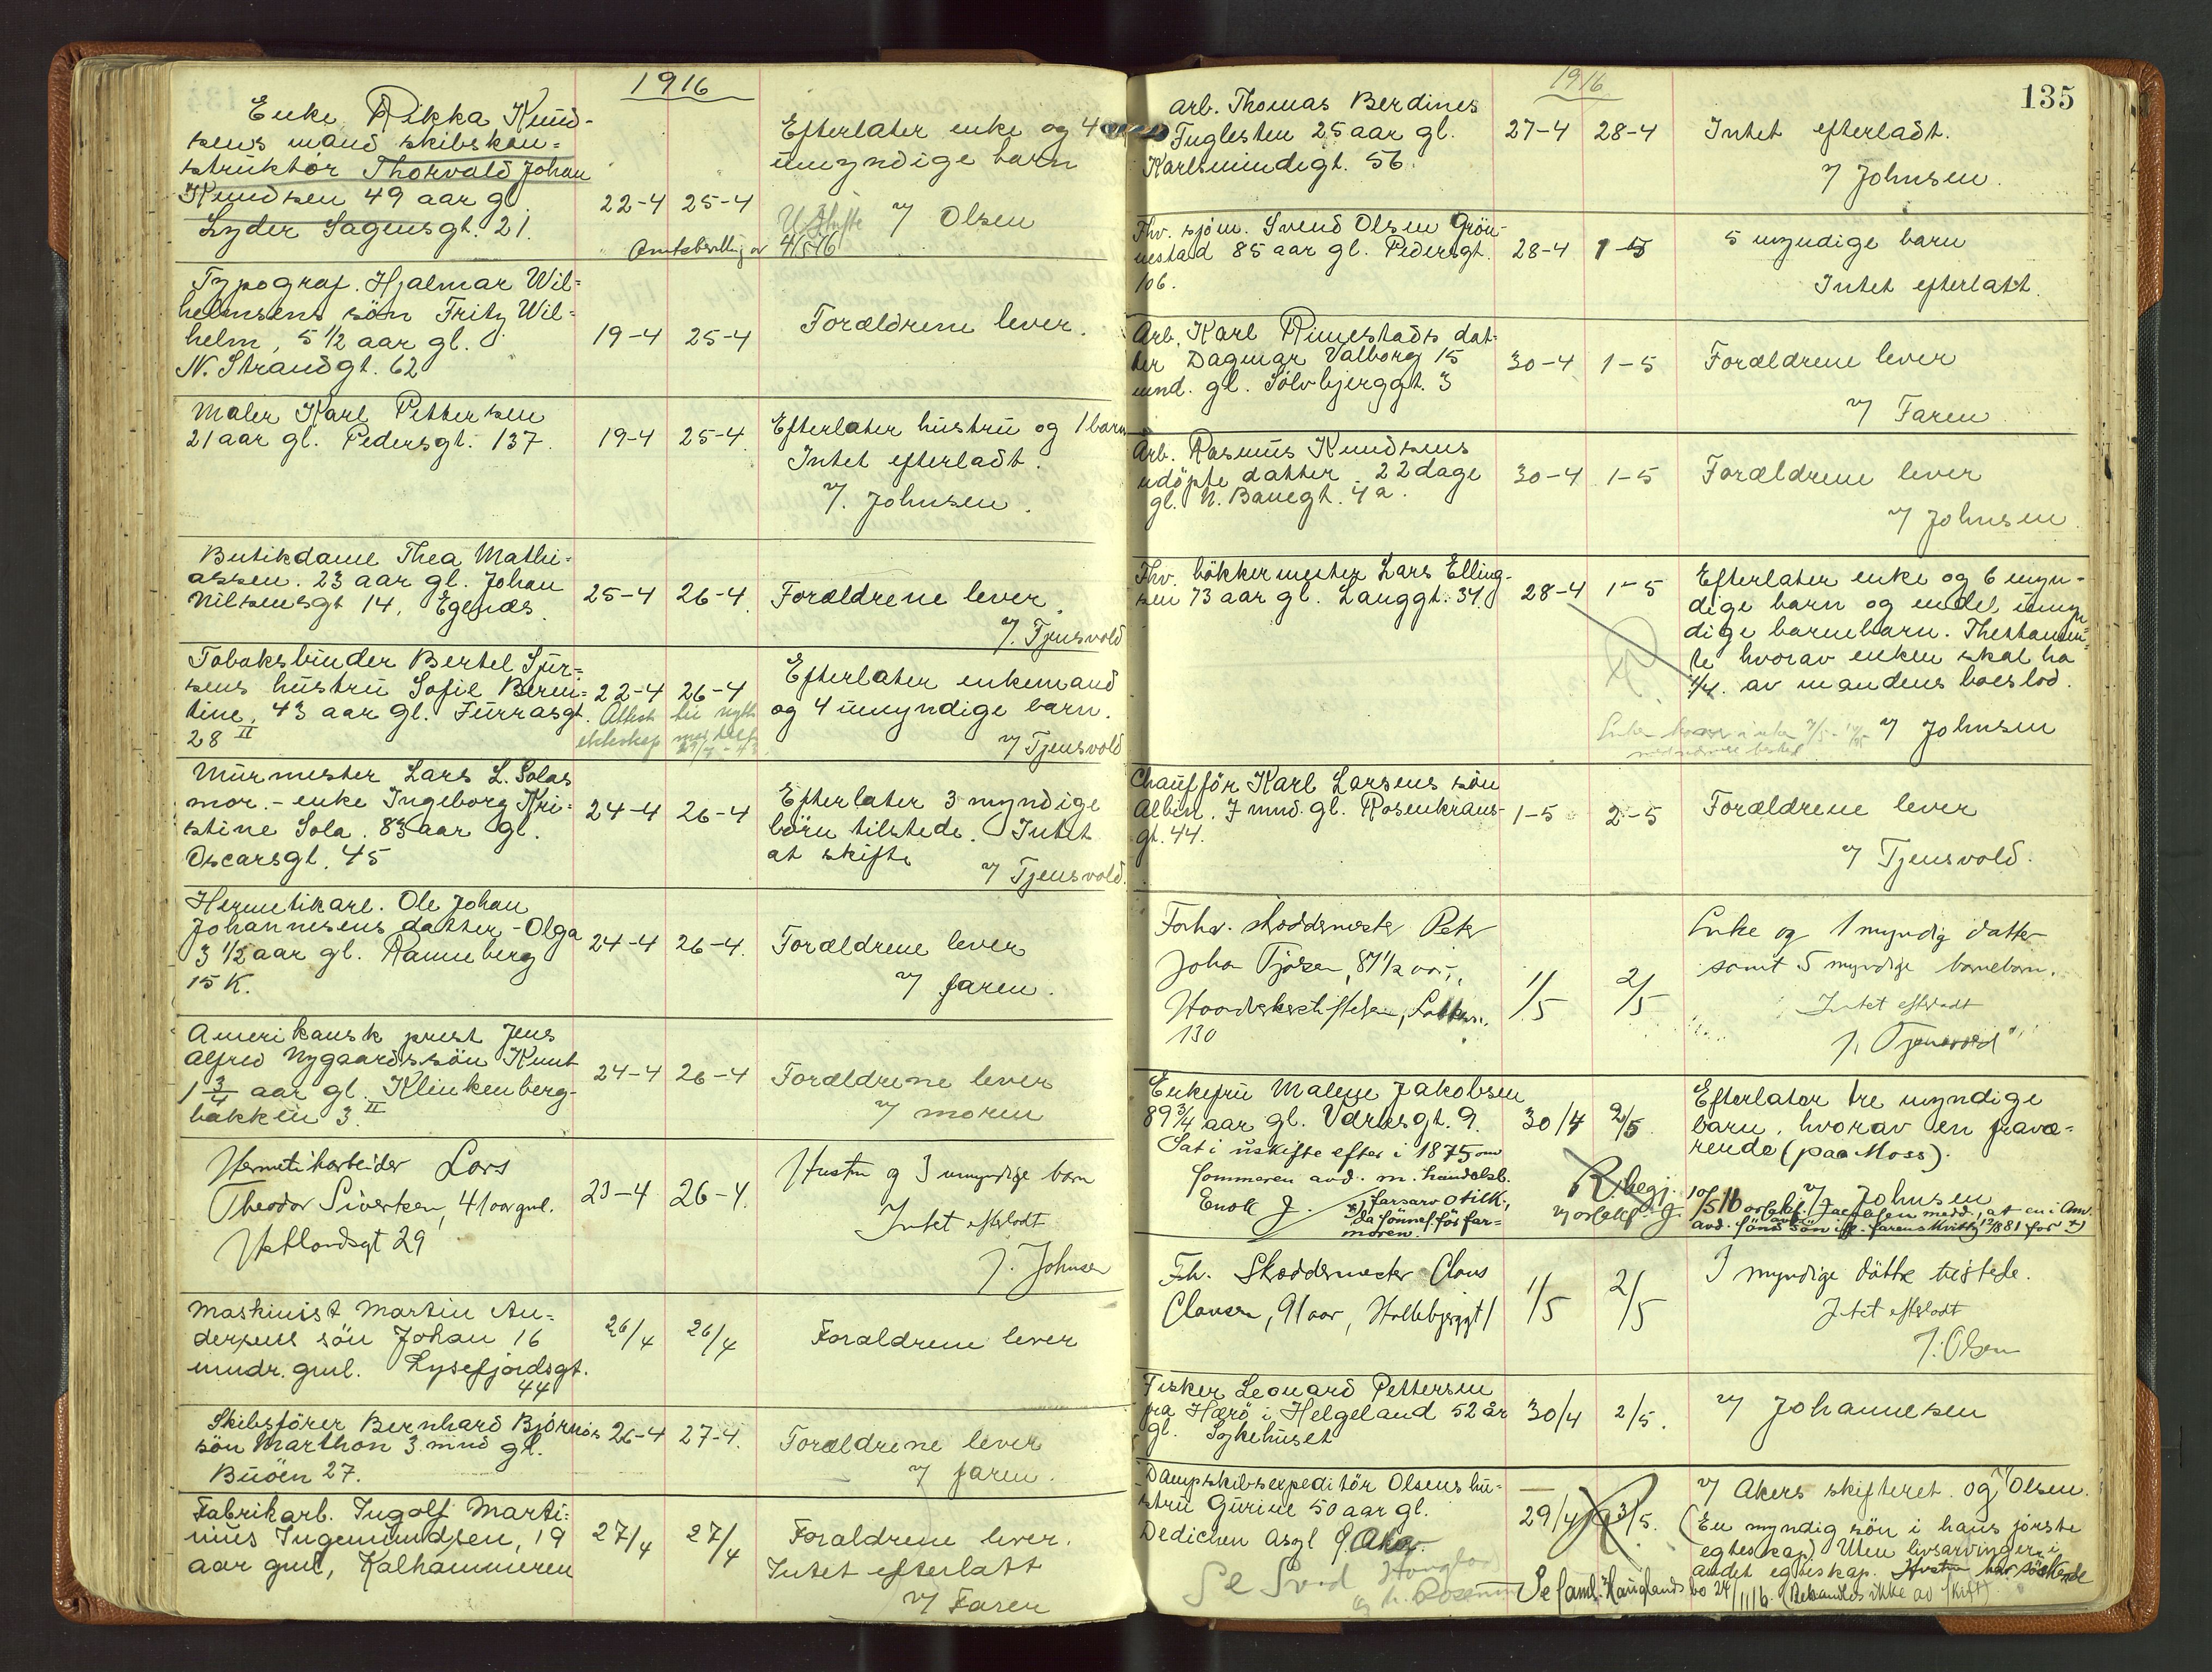 1916
Enke Rikka Knud-
sens mand skibskon-
struktør Thorvald Johan
Knudsen 49 aar gl.
Lyder Sagensgt. 21.
22-4 25-4
Efterlater enke og 4
umyndige barn
v/ Olsen
4/5 16
Typograf. Hjalmar Wil-
helmsens søn Fritz Wil-
helm, 5 1/2 aar gl.
N. Strandgt. 62
19-4 25-4
Forældrene lever.
Maler Karl Pettersen
21 aar gl. Pedersgt. 137.
19-4 25-4
Efterlater hustru og 1 barn
Intet efterladt.
v/ Johnsen.
Butikdame Thea Mathi-
assen. 23 aar gl. Johan
Nilsensgt 14, Egenæs.
25-4 26-4
Forældrene lever.
v/ Tjensvold
Tobaksbinder Bertel Sjur-
sens hustru Sofie Beren-
tine, 43 aar gl. Furrasgt.
28 II
22-4 26-4
Attest til nytt
ekteskap
Efterlater enkemand
og 4 umyndige barn.
v/ Tjensvold
Murmester Lars L. Solas
mor. - enke Ingeborg Kri-
stine Sola. 83 aar gl.
Oscarsgt. 45
24-4 26-4
Efterlater 3 myndige
børn tilstede. Intet
at skifte
v/ Tjensvold.
Hermetikarb. Ole Johan
Johannesens datter - Olga
3 1/2 aar gl. Ramneberg
15 K.
24-4 26-4.
Forældrene lever
v/ faren.
Amerikansk prest Jens
Alfred Nygaards søn Knut
1 3/4 aar gl. Klinkenberg-
bakken 3 II
24-4 26-4
Forældrene lever
v/ moren
Hermetikarbeider Lars
Theodor Sivertsen, 41 aar gml.
Vestlandsgt 29
23-4 26-4.
Hustru og 3 umyndige barn
Intet efterladt
v/ Johnsen
Maskinist Martin An-
dersens søn Johan 16
mndr. gml. Lysefjordsgt.
44
26/4 26/4
Forældrene lever
Skibsfører Bernhard Bjørnøs
søn Marthon 3 mnd gl.
Buøen 27.
26-4 27-4.
Forældrene lever
v/ faren.
Fabrikarb. Ingolf Marti-
nius Ingemundsen, 19
aar gml, Kalhammeren
27/4 27/4
Forældrene lever.
Intet efterlatt
v/ Faren
1916
135
Arb. Thomas Berdines
Fuglesten 25 aar gl.
Karlsmindegt. 56.
27-4 28-4
Intet efterladt.
v/ Johnsen.
Fhv. sjøm. Svend Olsen Grøn-
nestad 85 aar gl. Pedersgt.
106.
28-4 1-5
5 myndige barn
Intet efterlatt.
Arb. Karl Rimestads dat-
ter Dagmar Valborg 15
mnd. gl. Sølvbjerggt. 3
30-4 1-5
Forældrene lever
v/ Faren
Arb. Rasmus Knudsens
udøpte datter 22 dage
gl. N. Banegt. 4 a.
30-4 1-5
Forældrene lever
v/ Johnsen.
Fhv. bøkkermester Lars Elling-
sen 73 aar gl. Langgt. 34.
28-4 1-5
Efterlater enke og 6 myn-
dige barn og endel umyn-
dige barnebarn. Thestamen-
te hvorav enken skal ha
1/4. av mandens boeslod.
v/ Johnsen
Chauffør Karl Larsens søn
Albin. 7 mnd. gl. Rosenkrans-
gt. 44.
1-5 2-5
Forældrene lever
v/ Tjensvold.
Forhv. skræddermester Peter
Johan Tjøsen, 87 1/2 aar,
130
1/5 2/5
Enke og 1 myndig datter
samt 5 myndige barnebarn.
Intet efterladt
v/ Tjensvold
Enkefru Malene Jakobsen
89 3/4 aar gl. Vårksgt. 9.
Sat i uskifte efter i 1875 om
sommeren avd. m. handelsb.
Enok J.
30/4 2/5
Efterlater tre myndige
barn, hvorav en fravæ-
rende (paa Moss).
v/ Johnsen
farsarv
da sønnef. før far-
moren.
Fh. Skræddermester Claus
Clausen, 91 aar, Holebjerggt 1
1/5 2/5
3 myndige døttre tilstede.
Intet efterladt
v/ Olsen
Fisker Leonard Pettersen
fra Hærø i Helgeland 52 år
gl. Sykehuset
30/4 2/5.
v/ Johannesen
Dampskibsexpeditør Olsens hu-
stru Gurine 50 aar gl.
Dedichen Asyl Aker
29/4 3/5.
v/ Akers skifteret. og Olsen.
(En myndig søn i hans første
egteskap) Uten livsarvinger i
andet egteskap. Hustru har søskende
Se saml. Hauglands bo 24/11 16. (Behandles ikke av skift)